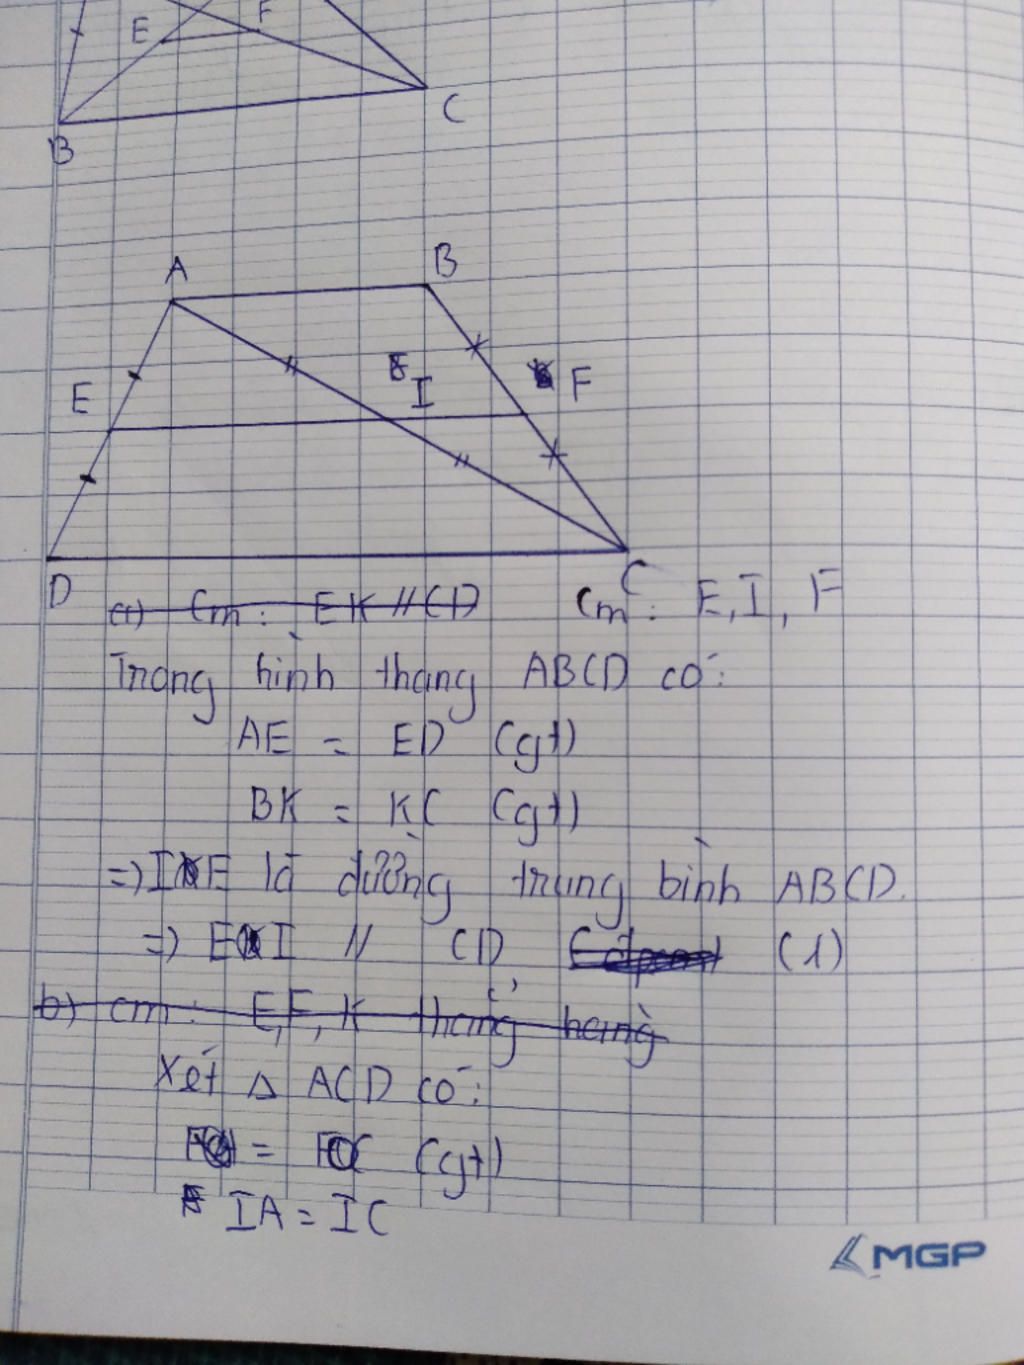 E F
C
B
A B
I
E F
D C
a) Cm: EK // CD Cm: E, I, F
Trong hình thang ABCD có:
AE = ED (gt)
BK = KC (gt)
=) IE là đường trung bình ABCD.
=) EI // CD (1)
b) cm: E, F, K thẳng hàng
Xét Δ ACD có:
= (gt)
IA = IC
MGP